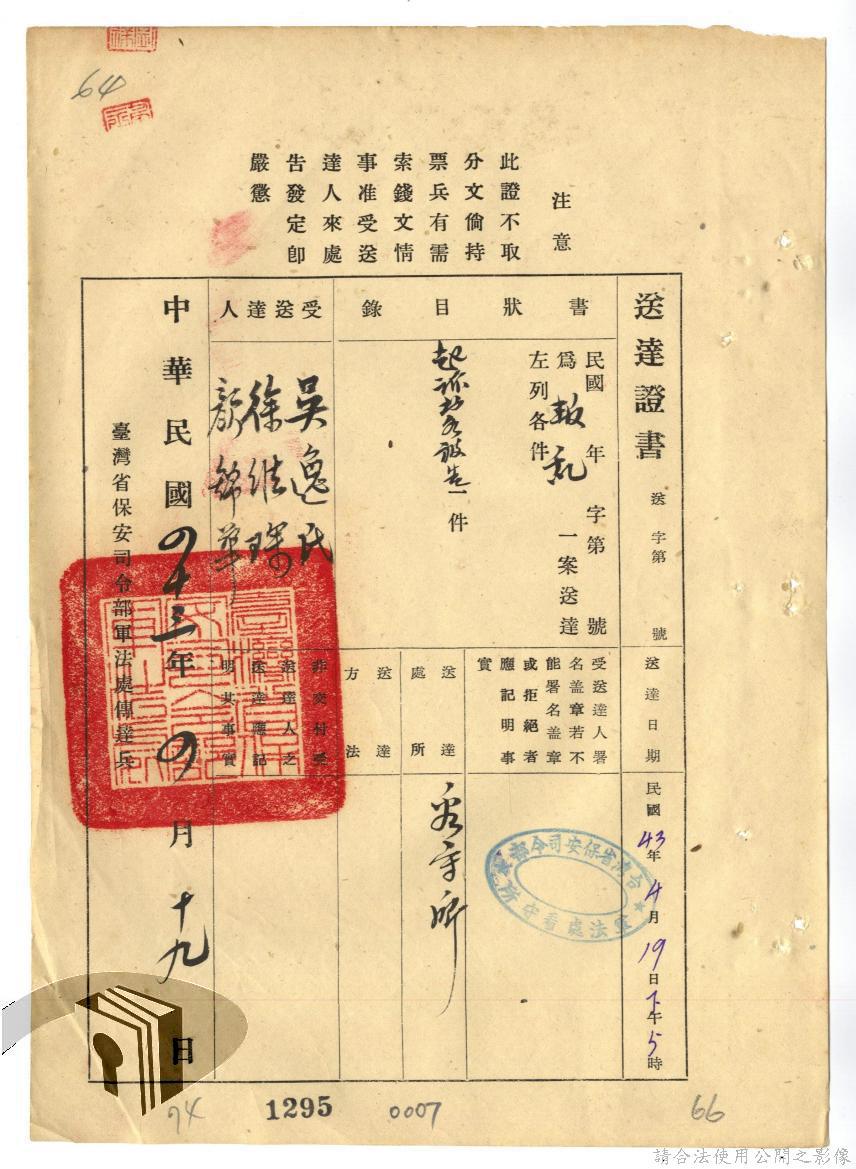 64
注意
此證不取
分文倘持
票兵有需
索錢文情
事准受送
達人來處
告發定卽
嚴懲
送達證書
送字第 號
送達日期
民國43年4月19日下午5時
書狀目錄
民國 年 字第 號
爲叛乱一案送達
左列各件
起訴書被告一件
受送達人署
名盖章若不
能署名盖章
或拒絕者
應記明事
實
台灣省保安司令部
軍法處看守所
送達處所
看守所
送達方法
受送達人
吳逸民
徐維琛
顏錦華
非交付受
送達人之
送達應記
明其事實
中華民國四十三年四月十九日
臺灣省保安司令部軍法處傳達兵
74
1295
0007
66
請合法使用公開之影像